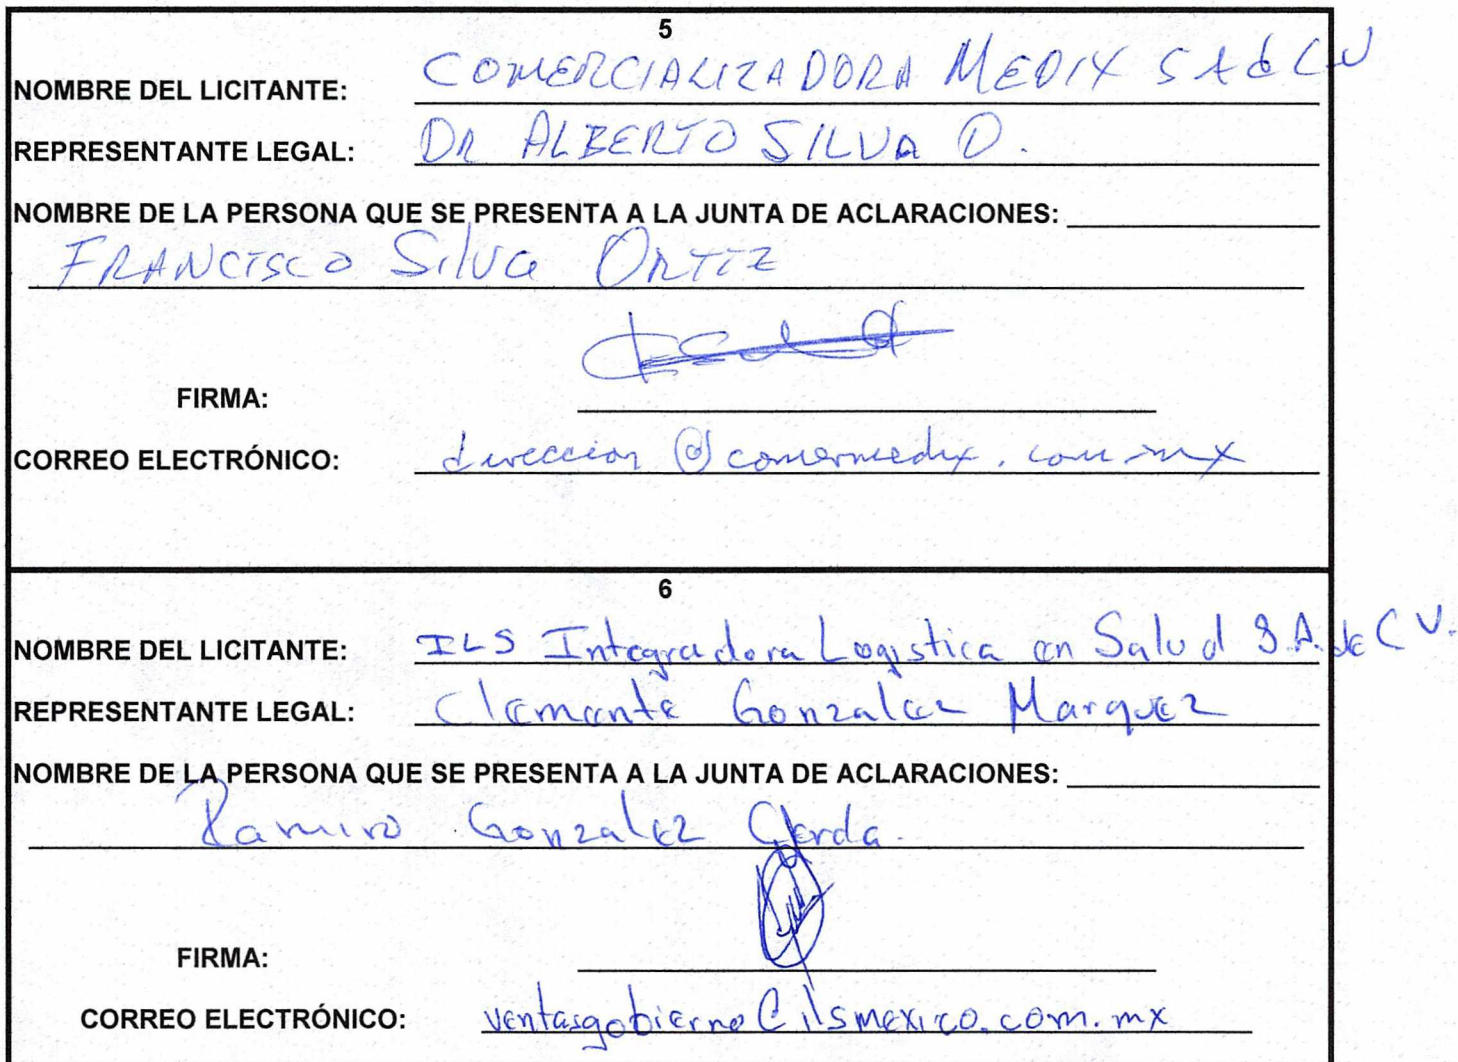 5
NOMBRE DEL LICITANTE: COMERCIALIZADORA MEDIX SA de CV
REPRESENTANTE LEGAL: DR ALBERTO SILVA O.
NOMBRE DE LA PERSONA QUE SE PRESENTA A LA JUNTA DE ACLARACIONES:
FRANCISCO Silva ORTIZ
FIRMA:
CORREO ELECTRÓNICO: direccion @ comermedix. com.mx
6
NOMBRE DEL LICITANTE: ILS Integradora Logistica en Salud S.A. de C V.
REPRESENTANTE LEGAL: Clemente Gonzalez Marquez
NOMBRE DE LA PERSONA QUE SE PRESENTA A LA JUNTA DE ACLARACIONES:
Ramiro Gonzalez
FIRMA:
CORREO ELECTRÓNICO: ventasgobierno@ilsmexico.com.mx